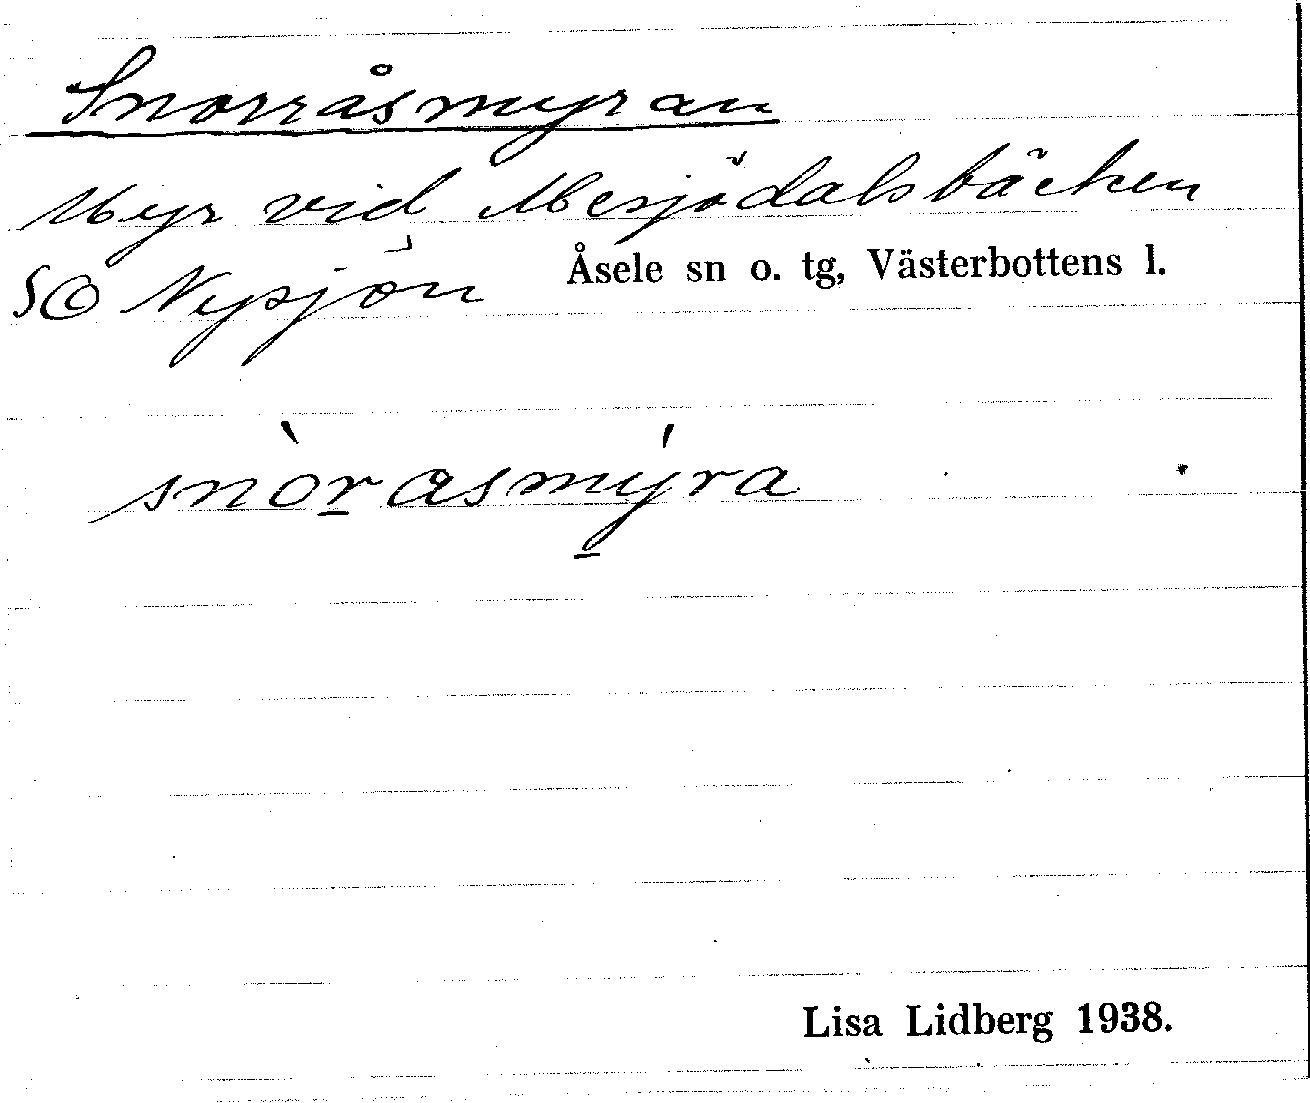 Snorråsmyran
Myr vid Mesjödalsbäcken
SO Nysjön Åsele sn o. tg, Västerbottens l.
snòrasmýra
Lisa Lidberg 1938.